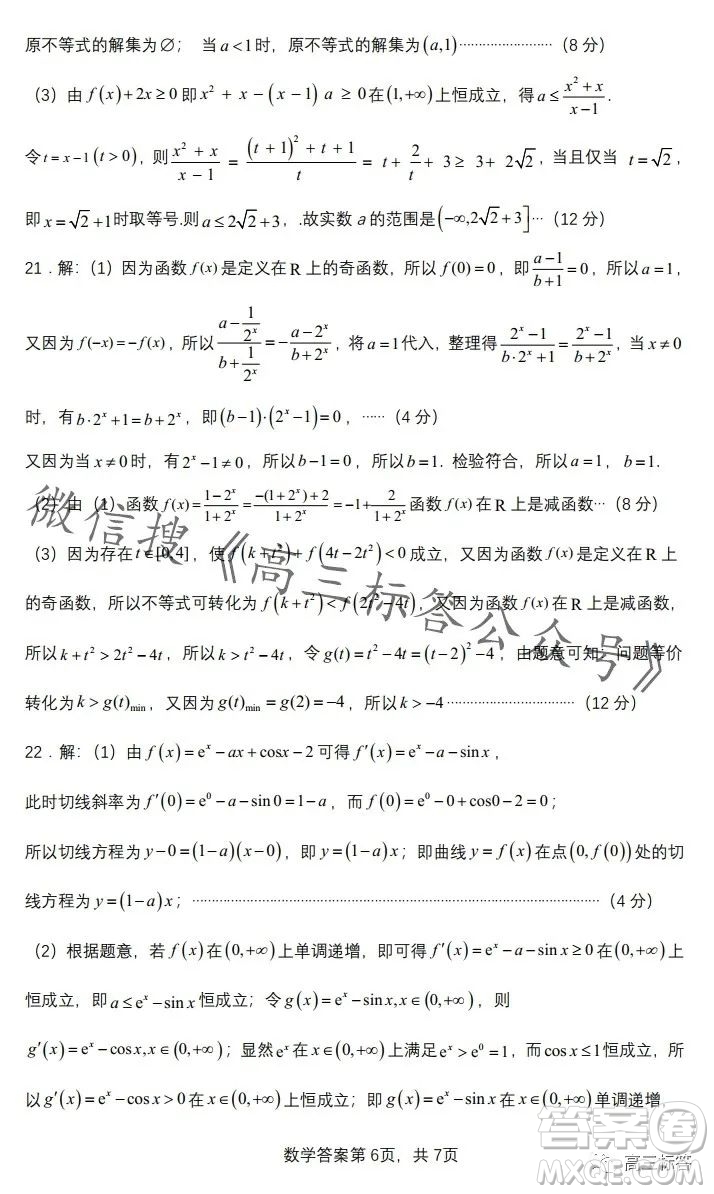 原不等式的解集为∅； 当 a<1 时，原不等式的解集为 (a,1)························(8 分)
（3）由 f(x)+2x≥0 即 x² + x −(x −1) a ≥0 在 (1,+∞) 上恒成立，得 a ≤ (x²+x)/(x−1) .
令 t = x−1 (t >0)，则 (x²+x)/(x−1) = ((t+1)²+t+1)/t = t + 2/t + 3 ≥ 3+ 2√2，当且仅当 t =√2，
即 x =√2+1 时取等号.则 a ≤ 2√2+3，.故实数 a 的范围是 (−∞,2√2+3]···(12 分)
21．解:（1）因为函数 f(x) 是定义在 R 上的奇函数，所以 f(0)=0，即 (a−1)/(b+1)=0，所以 a=1，
又因为 f(−x)=−f(x)，所以 (a−1/2ˣ)/(b+1/2ˣ)=−(a−2ˣ)/(b+2ˣ)，将 a=1 代入，整理得 (2ˣ−1)/(b·2ˣ+1)=(2ˣ−1)/(b+2ˣ)，当 x≠0
时，有 b·2ˣ+1=b+2ˣ，即 (b−1)·(2ˣ−1)=0，······(4 分)
又因为当 x≠0 时，有 2ˣ−1≠0，所以 b−1=0，所以 b=1. 检验符合，所以 a=1，b=1.
（2）由（1）函数 f(x)=(1−2ˣ)/(1+2ˣ)=(−(1+2ˣ)+2)/(1+2ˣ)=−1+2/(1+2ˣ) 函数 f(x) 在 R 上是减函数···(8 分)
（3）因为存在 t∈[0,4]，使 f(k+t²)+f(4t−2t²)<0 成立，又因为函数 f(x) 是定义在 R 上
的奇函数，所以不等式可转化为 f(k+t²)<f(2t²−4t)，又因为函数 f(x) 在 R 上是减函数，
所以 k+t²>2t²−4t，所以 k>t²−4t，令 g(t)=t²−4t=(t−2)²−4，由题意可知，问题等价
转化为 k>g(t)min，又因为 g(t)min=g(2)=−4，所以 k>−4·································(12 分)
22．解:（1）由 f(x)=eˣ−ax+cosx−2 可得 f′(x)=eˣ−a−sinx，
此时切线斜率为 f′(0)=e⁰−a−sin0=1−a，而 f(0)=e⁰−0+cos0−2=0；
所以切线方程为 y−0=(1−a)(x−0)，即 y=(1−a)x；即曲线 y=f(x) 在点 (0,f(0)) 处的切
线方程为 y=(1−a)x；·····································································(4 分)
（2）根据题意，若 f(x) 在 (0,+∞) 上单调递增，即可得 f′(x)=eˣ−a−sinx≥0 在 (0,+∞) 上
恒成立，即 a≤eˣ−sinx 恒成立；令 g(x)=eˣ−sinx,x∈(0,+∞)，则
g′(x)=eˣ−cosx,x∈(0,+∞)；显然 eˣ 在 x∈(0,+∞) 上满足 eˣ>e⁰=1，而 cosx≤1 恒成立，所
以 g′(x)=eˣ−cosx>0 在 x∈(0,+∞) 上恒成立；即 g(x)=eˣ−sinx 在 x∈(0,+∞) 单调递增，
数学答案第 6页，共 7页
微信搜《高三标答公众号》
答案圈
高三标答
MXQE.COM